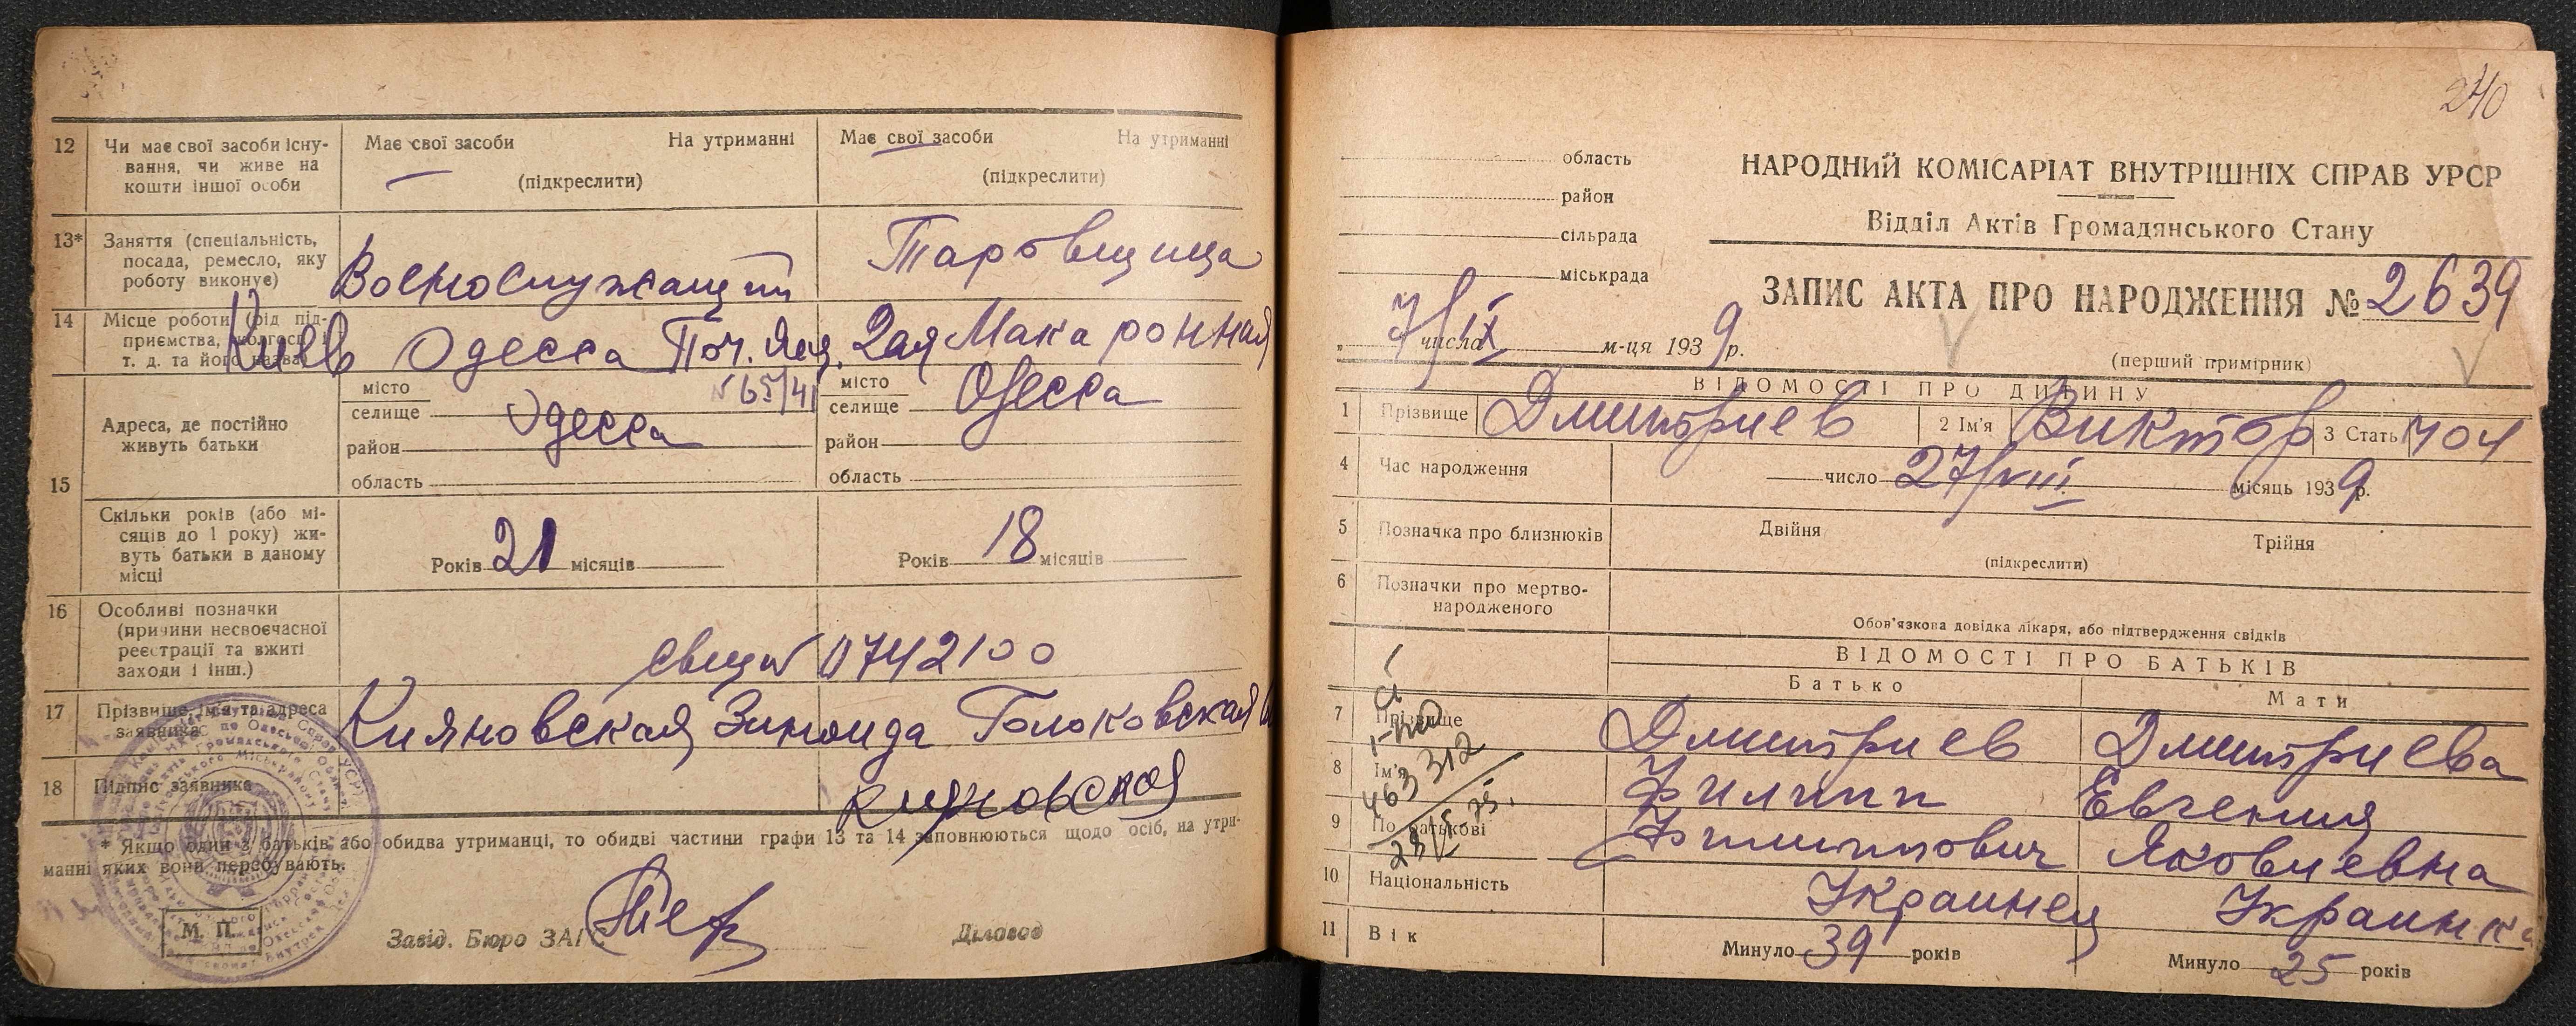 12 Чи має свої засоби існу-
вання, чи живе на
кошти іншої особи
Має свої засоби На утриманні
(підкреслити)
Має свої засоби На утриманні
(підкреслити)
13* Заняття (спеціальність,
посада, ремесло, яку
роботу виконує)
Военослужащий
Таровщица
14 Місце роботи (від під-
приємства,
т. д. та його назва)
Киев Одесса Поч. Ящ. 2ая Макаронная
№ 65/41
15 Адреса, де постійно
живуть батьки
місто
селище Одесса
район
область
місто
селище Одесса
район
область
Скільки років (або мі-
сяців до 1 року) жи-
вуть батьки в даному
місці
Років 21 місяців
Років 18 місяців
16 Особливі позначки
(причини несвоєчасної
реєстрації та вжиті
заходи і інш.)
0742100
17 Прізвище, ім'я та адреса
заявника
Кияновская Зинаида
18 Підпис заявника
Кияновская
* Якщо один з батьків або обидва утриманці, то обидві частини графи 13 та 14 заповнюються щодо осіб, на утри-
манні яких вони перебувають.
М. П.
Завід. Бюро ЗАГС
Діловод
240
область
район
сільрада
міськрада
НАРОДНИЙ КОМІСАРІАТ ВНУТРІШНІХ СПРАВ УРСР
Відділ Актів Громадянського Стану
ЗАПИС АКТА ПРО НАРОДЖЕННЯ № 2639
„ 7/IX числа м-ця 1939 р.
(перший примірник)
ВІДОМОСТІ ПРО ДИТИНУ
1 Прізвище Дмитриев 2 Ім'я Виктор 3 Стать чол
4 Час народження число 27/VIII місяць 1939 р.
5 Позначка про близнюків Двійня Трійня
(підкреслити)
6 Позначки про мертво-
народженого
Обов'язкова довідка лікаря, або підтвердження свідків
ВІДОМОСТІ ПРО БАТЬКІВ
Батько Мати
7 Прізвище Дмитриев Дмитриева
8 Ім'я Филипп Евгения
463312
9 По батькові Филиппович Яковлевна
10 Національність Украинец Украинка
11 Вік Минуло 39 років Минуло 25 років